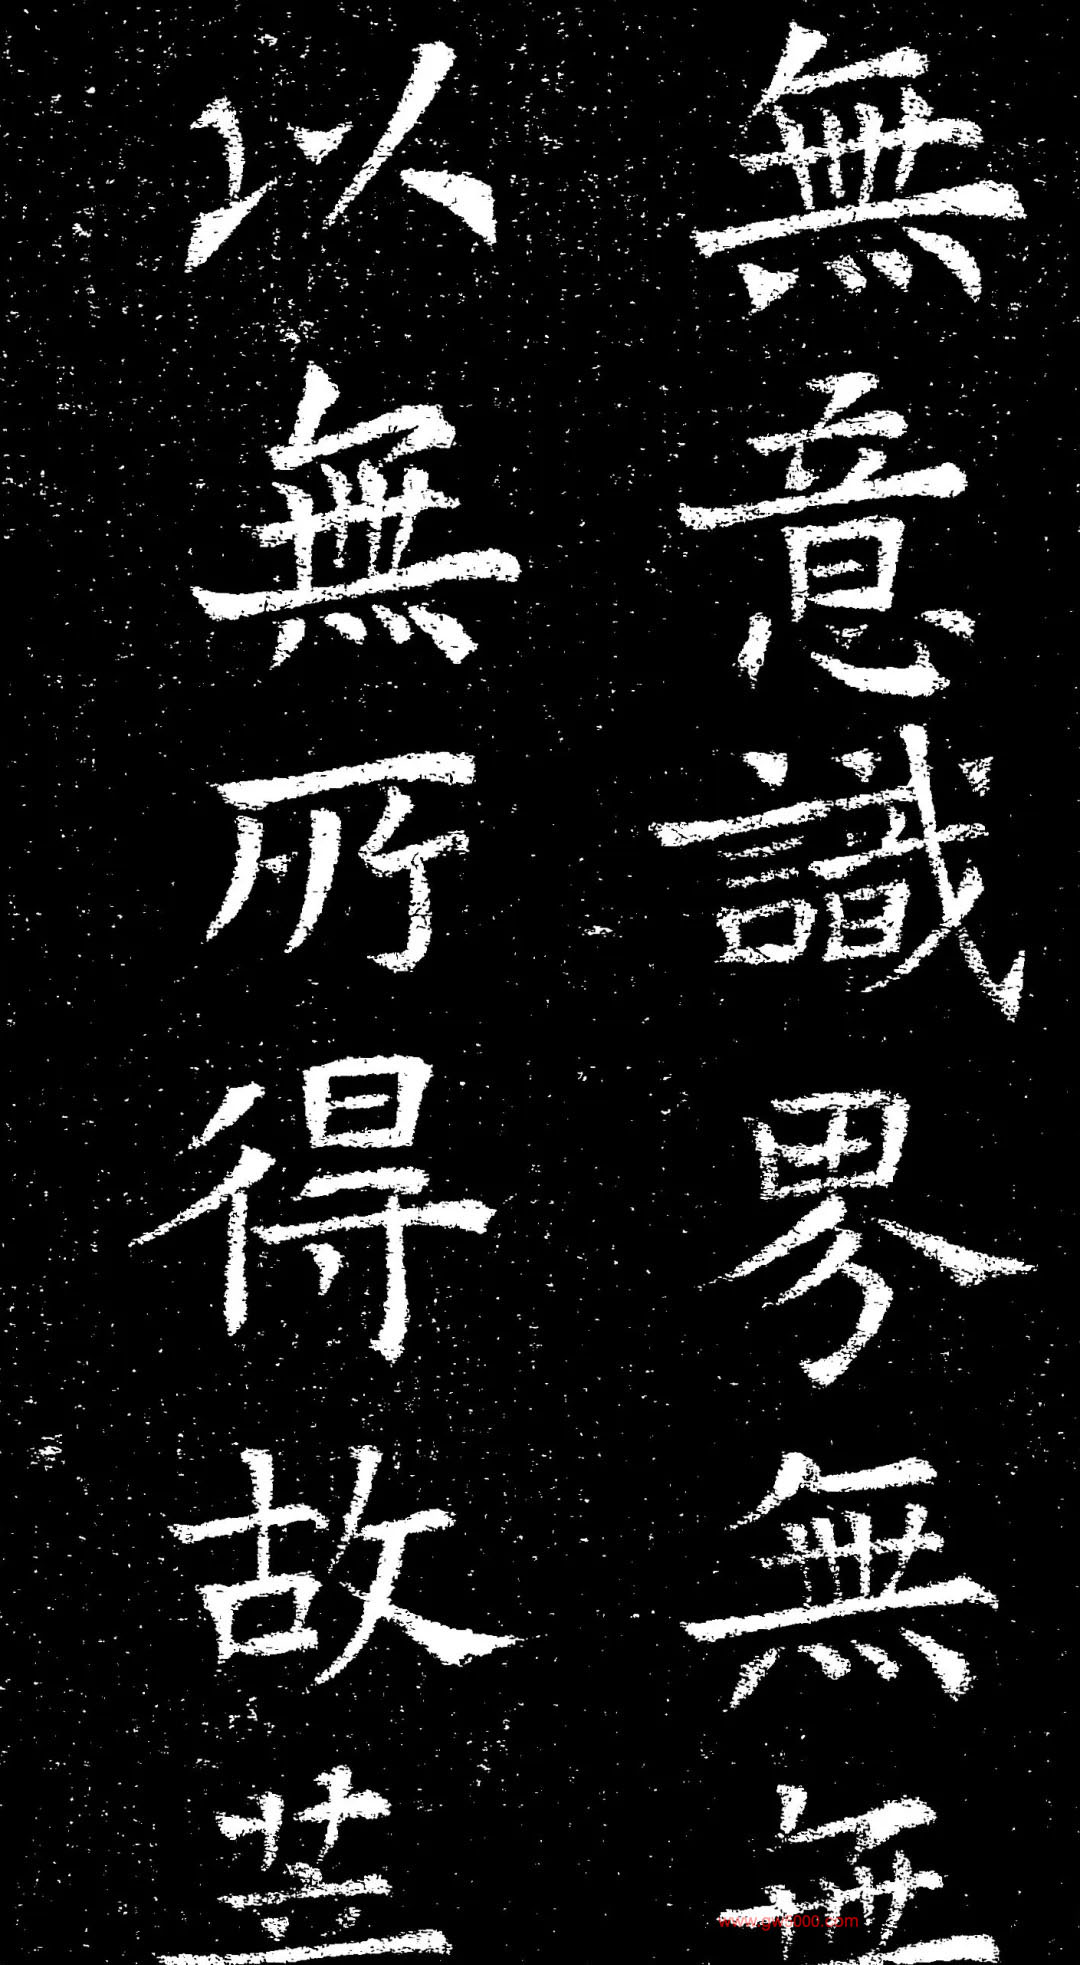 無意識界無無
以無所得故菩
www.gw5000.com